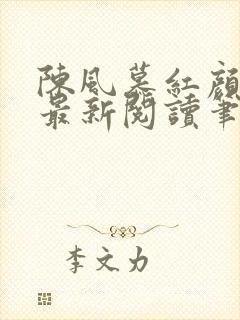 陳風慕紅顏
最新閱讀筆
李文力